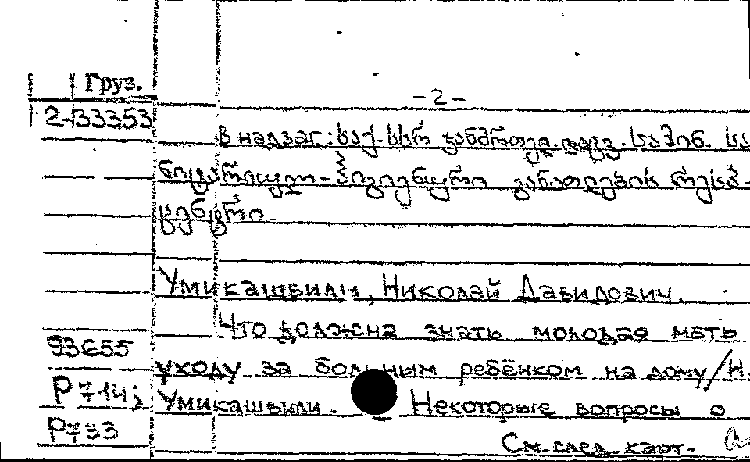 Груз.
-2-
2-33353
В надзаг.: საქ. სსრ ჯანმრთელ. დაცვ. სამინ. სა-
ნიტარიული-ჰიგიენური განათლების რესპ.
ცენტრი
Умикашвили, Николай Давидович.
Что должна знать молодая мать
93655
уходу за больным ребёнком на дому/Н.
Р714;
Умикашвили. Некоторые вопросы о
См. след. карт.